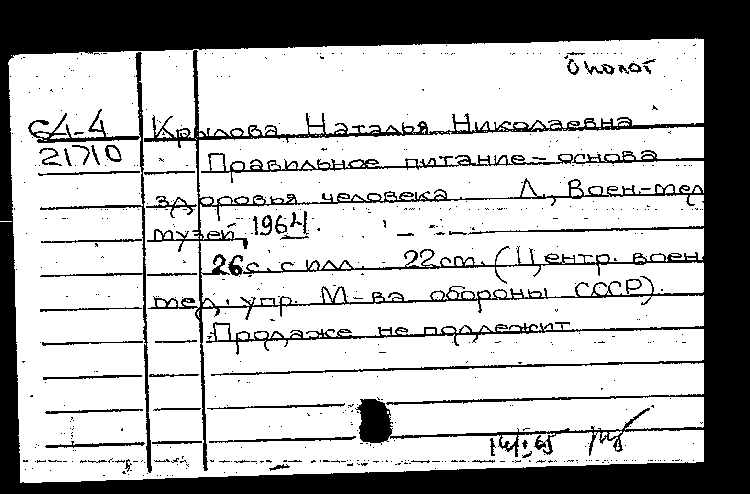 биолог
Крылова, Наталья Николаевна
21710 Правильное питание = основа
здоровья человека Л., Воен-мед
музей, 1964.
26с. с илл. 22см. (Центр. воен.
мед. упр. М-ва обороны СССР).
Продаже не подлежит